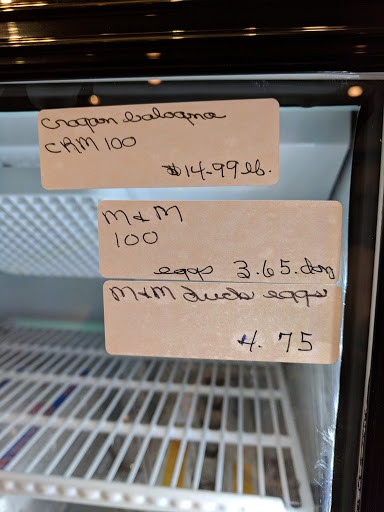 Cragan balogna
CRM 100
$14.99 lb.
M & M
100
eggs 3.65.doz
M & M duck eggs
4.75